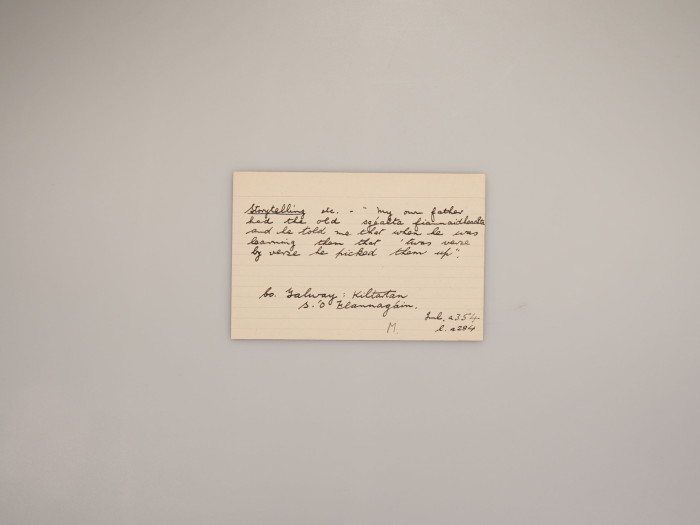 Storytelling etc. - "My own father
had the old sgéalta fiannaidheachta
and he told me that when he was
learning them that 'twas verse
by verse he picked them up".
Co. Galway; Kiltartan
S. Ó Flannagáin.
Iml. a354
l. a284
M.